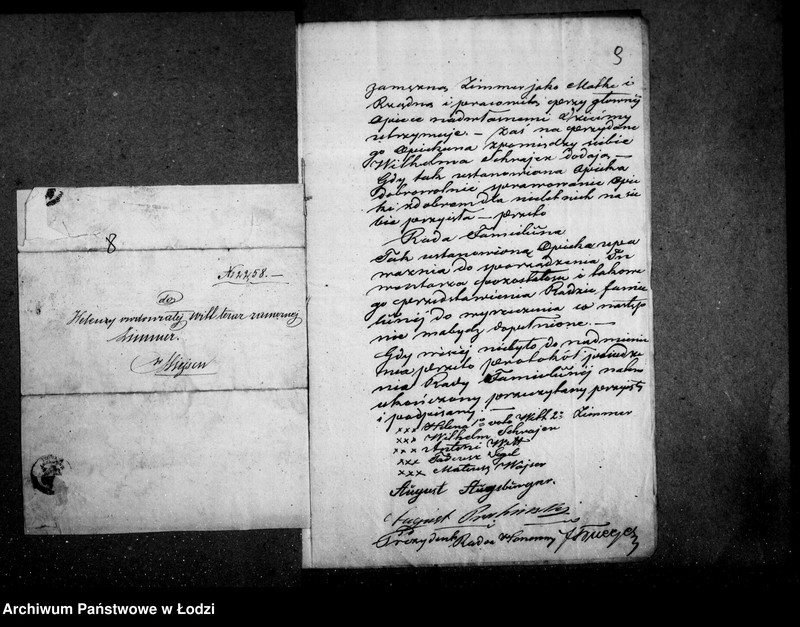 8
№ 2258. —
do
Heleny owdowiałej Witt teraz zamężnej
Zimmer.
w Miejscu
9
zamężną Zimmer jako Matkę i
Rządną i pracowitą przy głównej
Opiece nad własnemi Dziećmi
utrzymuje. — Zaś na przydane
go Opiekuna z pomiędzy siebie
Wilhelma Schrajer dodają —
Gdy tak ustanowiona Opieka
dobrowolnie sprawowanie Opie
ki z dobrem dla nieletnich na sie
bie przyjęła — przeto
Rada Familijna
Tak ustanowioną Opiekę upo
ważnia do sporządzenia In
wentarza pozostałości i takowe
go przedstawienia Radzie Fami
lijnej do wyrzeczenia co nastę
pnie
Gdy więcej niebyło do nadmienie
nia przeto protokół posiedze
nia Rady Familijnej
ukończony przeczytany przyjęty
i podpisany. —
xxx Helena 1o voto Witt 2o Zimmer
xxx Wilhelm Schrajer
xxx Witt
xxx Tadeusz Igel
xxx Mateusz Wajser
August Augsburgar.
August
Prezydent Radca Honorowy
Archiwum Państwowe w Łodzi